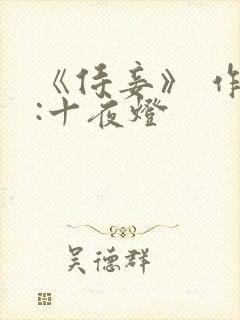 《侍妾》 作
:十夜燈
吴德群